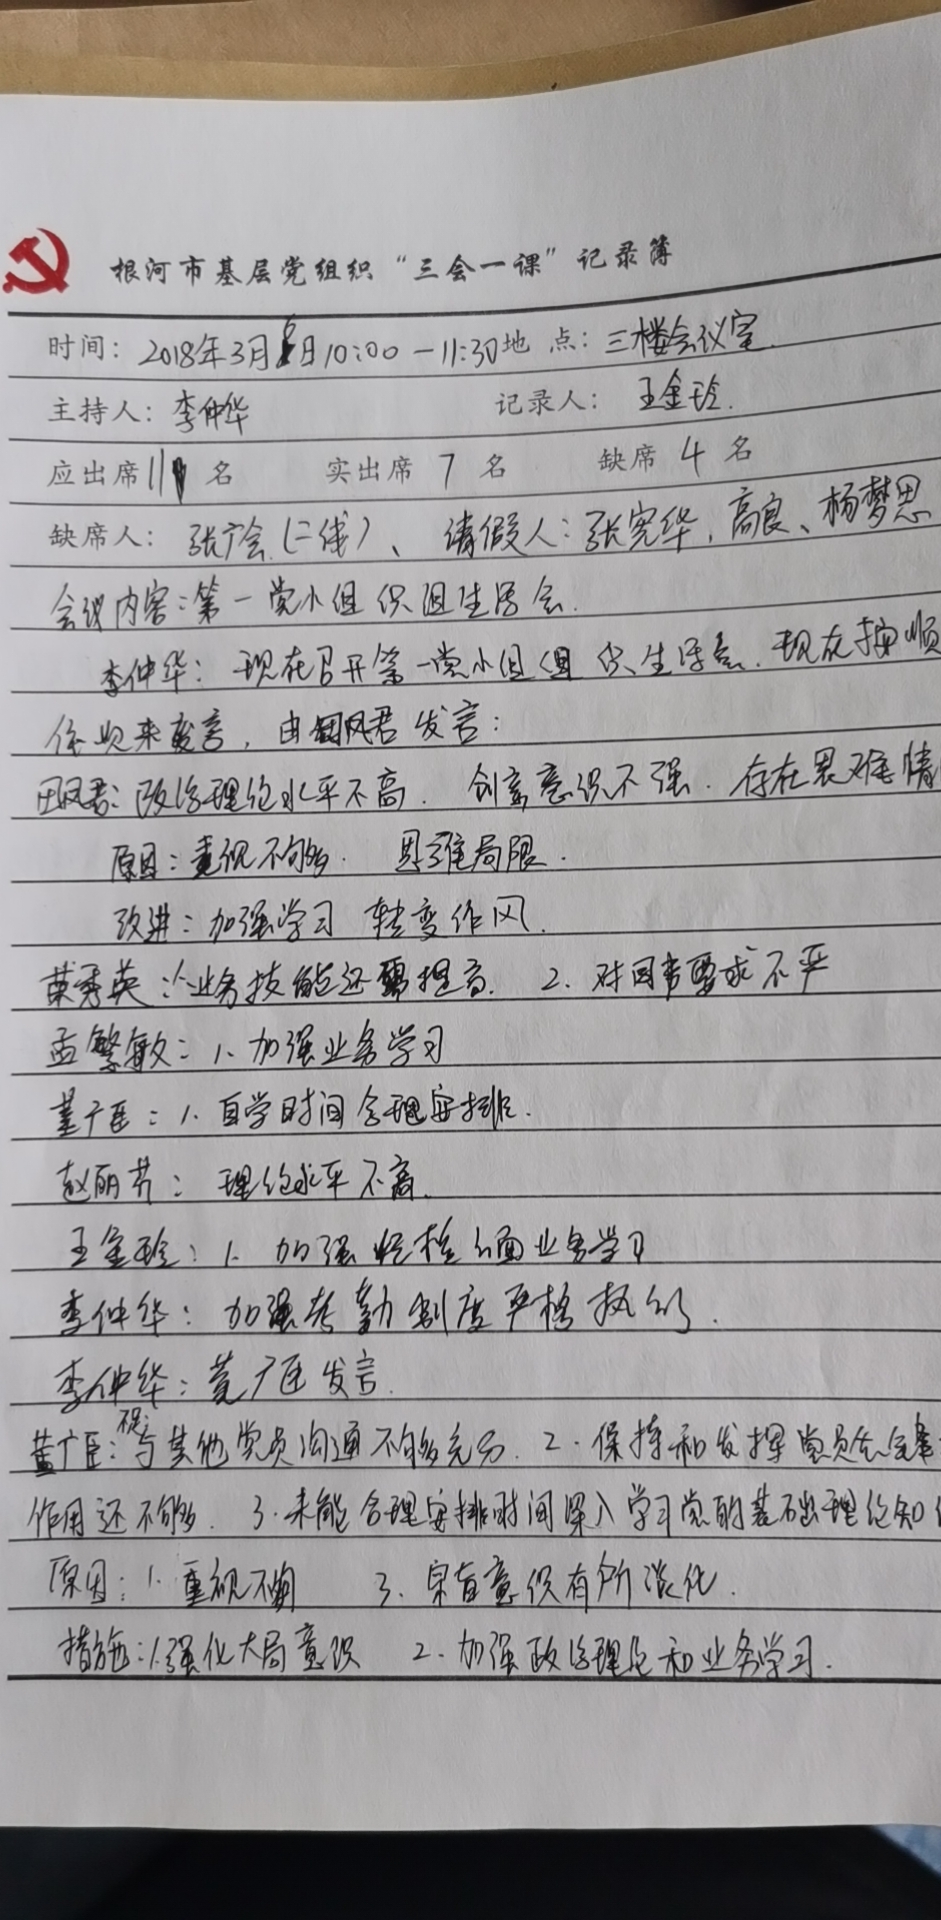 根河市基层党组织“三会一课”记录簿
时间：2018年3月 日10:00-11:30 地点：三楼会议室.
主持人：李仲华 记录人：王金玲.
应出席11名 实出席7名 缺席4名
缺席人：张广会(二线)、请假人：张宪华，高良、杨梦思
会议内容：第一党小组织组生活会.
李仲华：现在召开第一党小组组织生活会.现在按顺
依次来发言，由田凤君发言：
田凤君：政治理论水平不高. 创新意识不强. 存在畏难情
原因：重视不够. 思维局限.
改进：加强学习 转变作风.
荣秀英：1、业务技能还需提高. 2、对同事要求不严
孟繁敏：1、加强业务学习
董广臣：1、自学时间合理安排.
赵丽芳：理论水平不高.
王金玲：1. 加强 业务学习
李仲华：加强考勤制度严格执行.
李仲华：董广臣发言.
董广臣：不足：与其他党员沟通不够充分. 2. 保持和发挥党员先
作用还不够. 3.未能合理安排时间深入学习党的基础理论知
原因：1.重视不够 3. 宗旨意识有所淡化.
措施：1.强化大局意识 2.加强政治理论和业务学习.